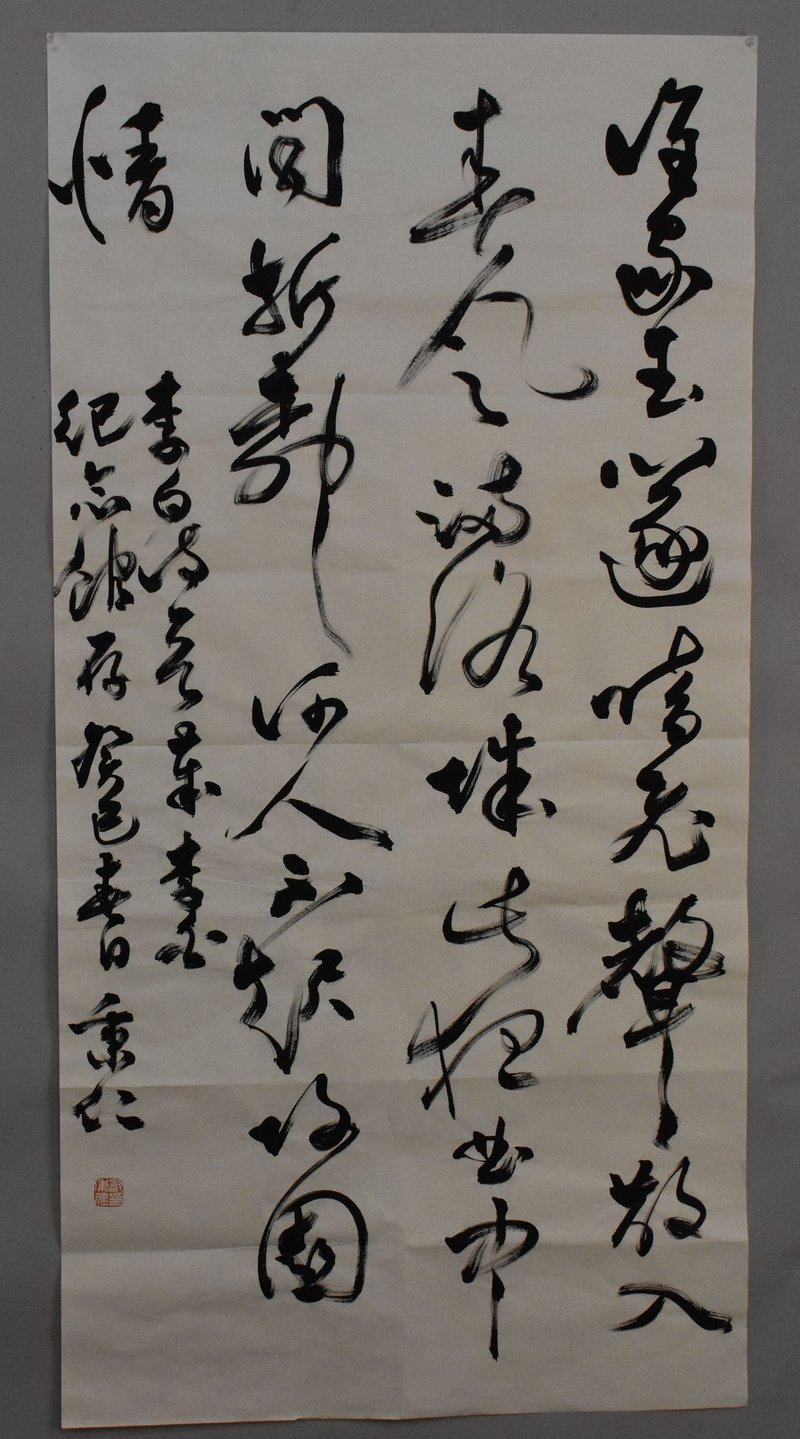 誰家玉篴暗飛聲散入
春風滿洛城此夜曲中
聞折柳何人不起故園
情
李白詩李白
紀念館存癸巳春日秉仁